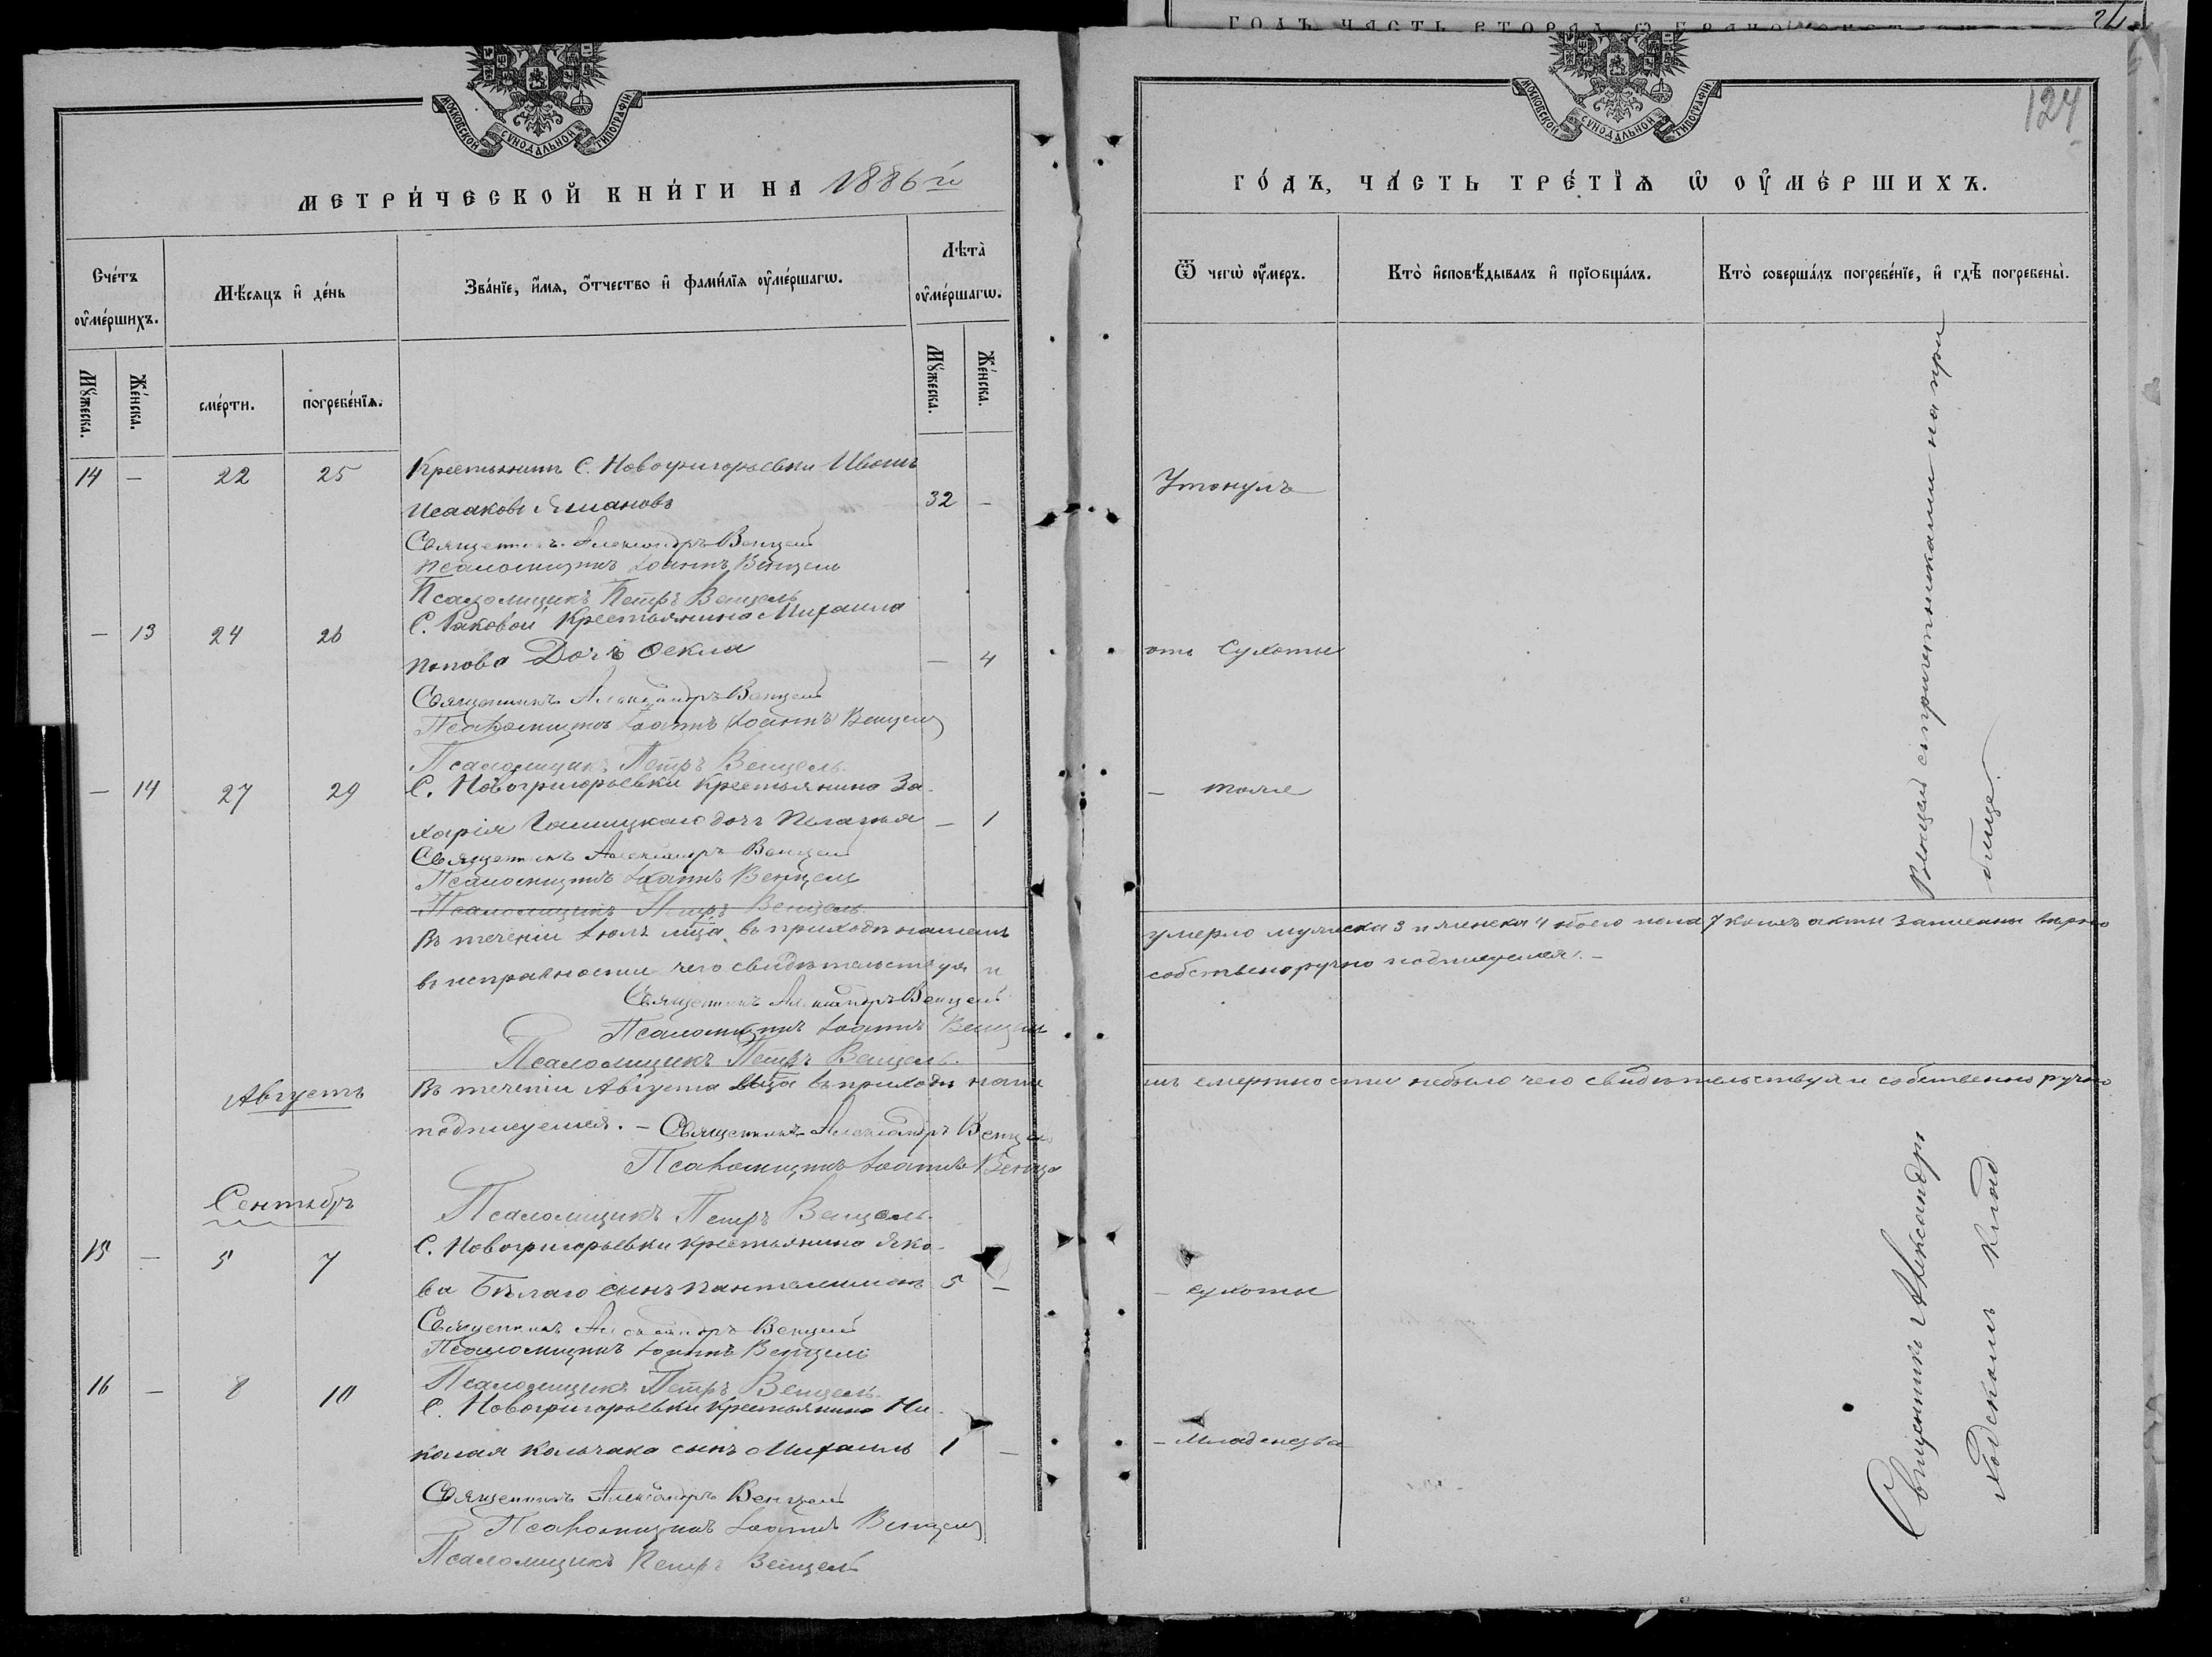 МОСКОВСКОЙ СѴНОДАЛЬНОЙ ТИПОГРАФІИ
МЕТРИ́ЧЕСКОЙ КНИ́ГИ НА 1886 й
Сче́тъ ᲂу҆ме́ршихъ.
Мѣ́сяцъ и҆ де́нь
Зва́нїе, и҆́мѧ, ѻ҆́тчество и҆ фами́лїѧ ᲂу҆ме́ршагѡ.
Лѣта̀ ᲂу҆ме́ршагѡ.
Мꙋ́жеска.
Же́нска.
сме́рти.
погребе́нїѧ.
Мꙋ́жеска.
Же́нска.
14 — 22 25 Крестьянинъ С. Новогригорьевки Иванъ
Исааковъ 32 —
Священникъ Александръ Венцель
Псаломщикъ Іоаннъ Венцель
Псаломщикъ Петръ Венцель
— 13 24 26 С. Раковой Крестьянина Михаила
Попова Дочь Ѳекла — 4
Священникъ Александръ Венцель
Псаломщикъ Іоаннъ Іоаннъ Венцель
Псаломщикъ Петръ Венцель.
— 14 27 29 С. Новогригорьевки Крестьянина За-
харія дочь Пелагія — 1
Священникъ Александръ Венцель
Псаломщикъ Іоаннъ Венцель
Псаломщикъ Петръ Венцель
Въ теченіи Іюль мца въ приходѣ нашемъ
въ исправности чего свидѣтельствуя и
Священникъ Александръ Венцель
Псаломщикъ Іоаннъ Венцель
Псаломщикъ Петръ Венцель.
Августъ Въ теченіи Августа мца въ приходѣ наше
подпишуемся. — Священникъ Александръ Венцель
Псаломщикъ Іоаннъ Венце
Сентябрь Псаломщикъ Петръ Венцель.
15 — 5 7 С. Новогригорьевки крестьянина Яко-
ва Бѣлаго сынъ Пантелеимонъ 5 —
Священникъ Александръ Венцель
Псаломщикъ Іоаннъ Венцель
Псаломщикъ Петръ Венцель.
16 — 8 10 С. Новогригорьевки Крестьянина Ни-
колая Кольчака сынъ Михаилъ 1 —
Священникъ Александръ Венцель
Псаломщикъ Іоаннъ Венцель
Псаломщикъ Петръ Венцель
124
МОСКОВСКОЙ СѴНОДАЛЬНОЙ ТИПОГРАФІИ
ГО́ДЪ, ЧА́СТЬ ТРЕ́ТЇѦ Ѡ҆ ОУ҆МЕ́РШИХЪ.
Ѿ чегѡ̀ ᲂу҆́меръ.
Кто̀ и҆сповѣ́дывалъ и҆ прїобща́лъ.
Кто̀ соверша́лъ погребе́нїе, и҆ гдѣ̀ погребены̀.
Утонулъ
отъ Сухоты
— тоже
Венцель съ причетниками на при
умерло мужеска 3 и женска 4 обоего пола 7 коихъ акты записаны вѣрно
собственоручно подпишуемся. —
мъ смертности небыло чего свидѣтельствуя и собственно ручно
— сухоты
— Младенства
Священникъ Александръ